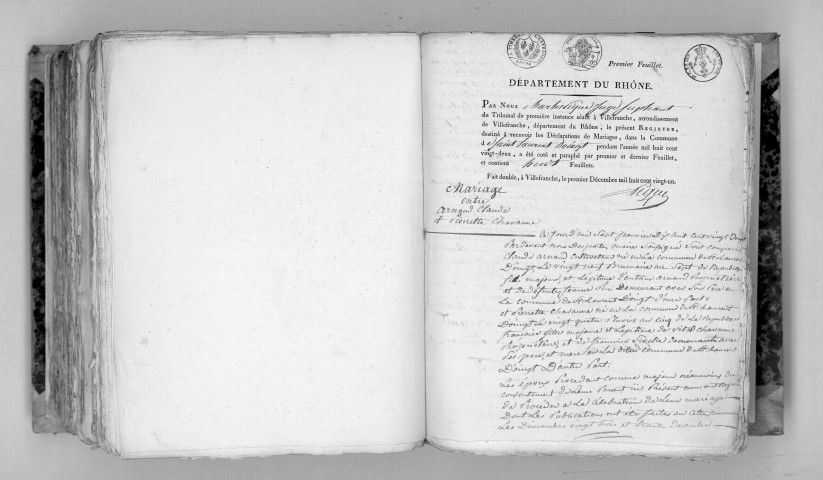 Premier Feuillet.
DÉPARTEMENT DU RHÔNE.
PAR NOUS juge suppléant
du Tribunal de première instance séant à Villefranche, arrondissement
de Villefranche, département du Rhône, le présent REGISTRE,
destiné à recevoir les Déclarations de Mariages, dans la Commune
d Saint Laurent Doingt pendant l'année mil huit cent
vingt-deux, a été coté et paraphé par premier et dernier Feuillet,
et contient huit Feuillets.
Fait double, à Villefranche, le premier Décembre mil huit cent vingt-un.
Mariage
entre
arnaud Claude
et pierrette Chavanne
Aujourd'hui Sept janvier Dix huit cent vingt Deux
Pardevant nous maire Soussigné Sont comparus
Claude arnaud cultivateur né en La commune de St Laurent
Doingt Le vingt neuf Brumaire an Sept de Republique
fils majeur et Légitime Dantoine arnaud Propriétaire
et de Demeurant avec Son Père en
La commune de St Laurent Doingt D'une Part
et Pierrette Chavanne née en La commune de St Laurent
Doingt Le vingt quatre an cinq de La Republique
françoise fille majeure et Légitime de Chavanne
Propriétaire, et de françoise demeurante avec
Ses pere et mere en La dite commune de St Laurent
Doingt Dautre Part.
Les époux Procedant comme majeur néanmoins du
consentement de Leurs Parent ici Présent nous ont requis
de Proceder a La Celebration de Leur mariage
Dont Les Publications ont été faites en cette commune
Les Dimanches vingt trois et trente Decembre